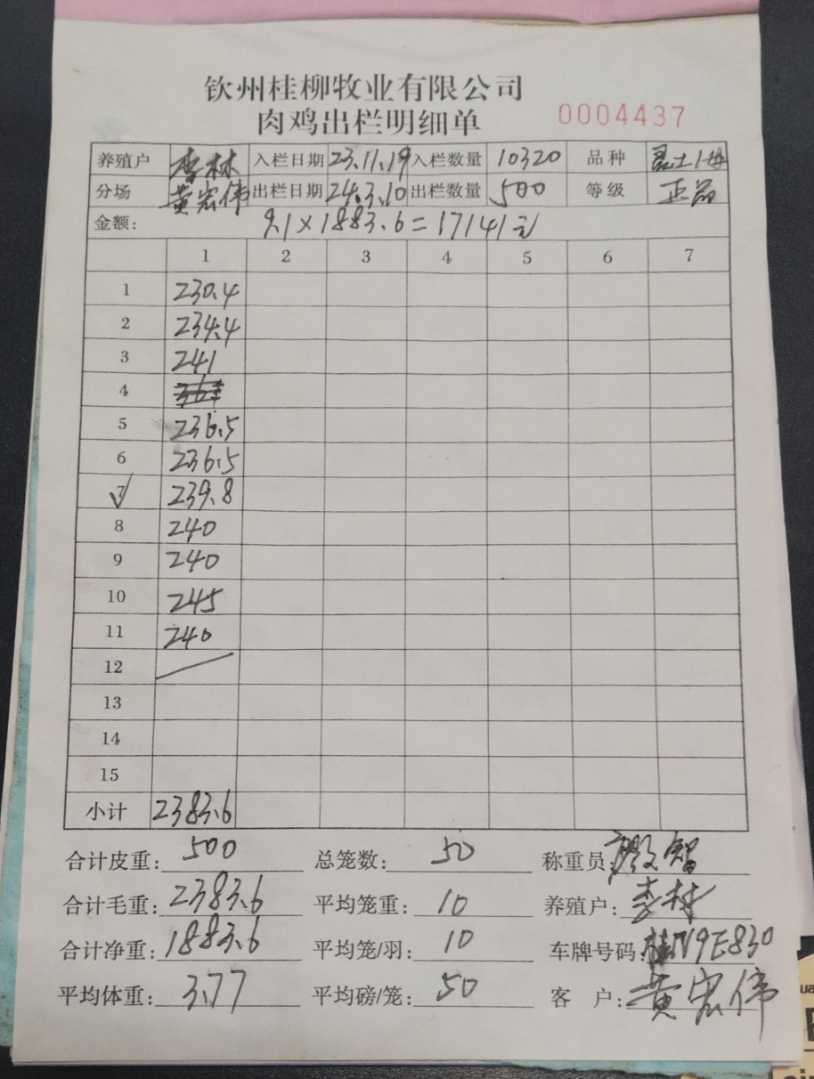 钦州桂柳牧业有限公司
肉鸡出栏明细单 0004437
养殖户 李林 入栏日期 23.11.19 入栏数量 10320 品种
分场 黄宏伟 出栏日期 24.3.10 出栏数量 500 等级 正品
金额: 9.1×1883.6=17141元
1 2 3 4 5 6 7
1 230.4
2 234.4
3 241
4
5 236.5
6 236.5
7 239.8
8 240
9 240
10 245
11 240
12
13
14
15
小计 2383.6
合计皮重: 500 总笼数: 50 称重员: 智
合计毛重: 2383.6 平均笼重: 10 养殖户: 李林
合计净重: 1883.6 平均笼/羽: 10 车牌号码: 桂N9E830
平均体重: 3.77 平均磅/笼: 50 客 户: 黄宏伟